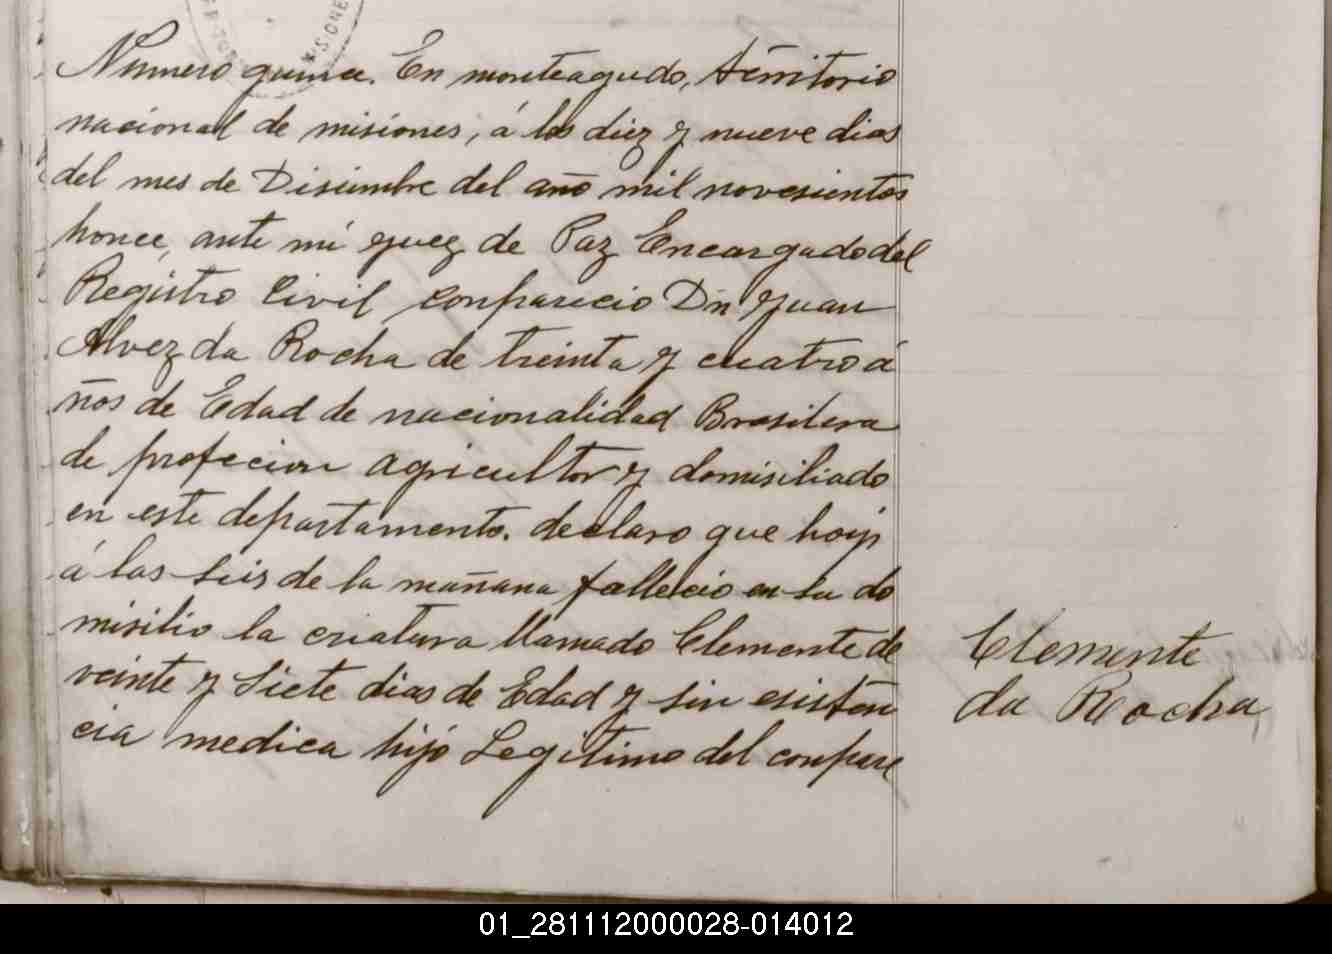 Numero quince. En monteagudo, territorio
nacional de misiones, á los diez y nueve dias
del mes de Disiembre del año mil novesientos
honce, ante mi guez de Paz Encargado del
Registro Civil conparecio Dn Juan
Alvez da Rocha de treinta y cuatro á
ños de Edad de nacionalidad Brasilera
de profecion agricultor y domisiliado
en este departamento. declaro que hoy
á las seis de la mañana fallecio en su do
misilio la criatura llamado Clemente de
veinte y Siete dias de Edad y sin esisten
cia medica hijo Legitimo del conpare
Clemente
da Rocha
01_281112000028-014012